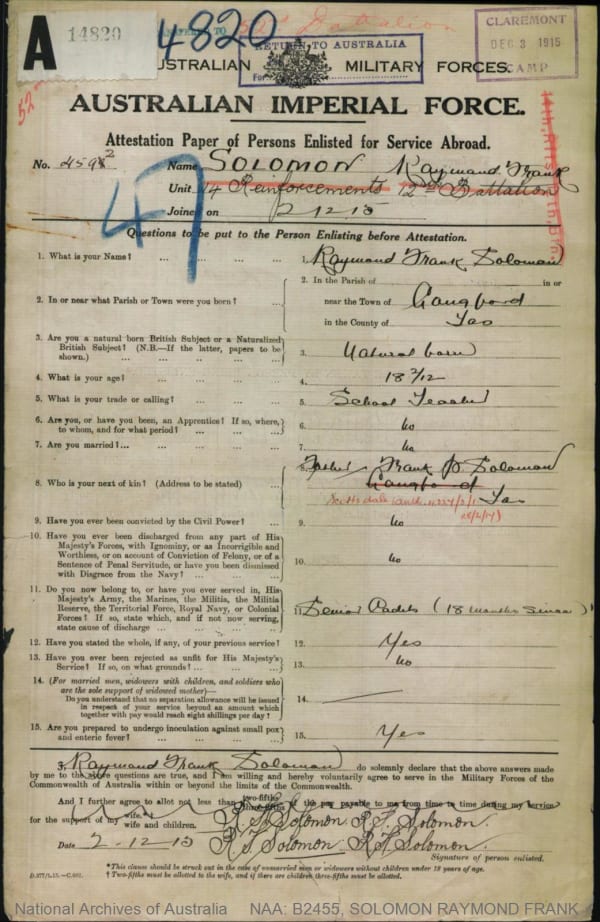 A
14820
4820
52nd Battalion
RETURN TO AUSTRALIA
For
CLAREMONT
DEC 3 1915
CAMP
AUSTRALIAN MILITARY FORCES.
AUSTRALIAN IMPERIAL FORCE.
52
Attestation Paper of Persons Enlisted for Service Abroad.
No. Name SOLOMON Raymond Frank
47
Unit 14 Reinforcements 12th Battalion
Joined on 2-12-15
Questions to be put to the Person Enlisting before Attestation.
1. What is your Name? ... 1. Raymond Frank Solomon
2. In or near what Parish or Town were you born? ... 2. In the Parish of in or
near the Town of Langford
in the County of Tas
3. Are you a natural born British Subject or a Naturalized
British Subject? (N.B.—If the latter, papers to be
shown.) ... 3. Natural born
4. What is your age? ... 4. 18 2/12
5. What is your trade or calling? ... 5. School Teacher
6. Are you, or have you been, an Apprentice? If so, where,
to whom, and for what period? ... 6. No
7. Are you married? ... 7. No
8. Who is your next of kin? (Address to be stated) ... 8. Father Frank Solomon
Langford Tas
Scottsdale
9. Have you ever been convicted by the Civil Power? ... 9. No
10. Have you ever been discharged from any part of His
Majesty's Forces, with Ignominy, or as Incorrigible and
Worthless, or on account of Conviction of Felony, or of a
Sentence of Penal Servitude, or have you been dismissed
with Disgrace from the Navy? ... 10. No
11. Do you now belong to, or have you ever served in, His
Majesty's Army, the Marines, the Militia, the Militia
Reserve, the Territorial Force, Royal Navy, or Colonial
Forces? If so, state which, and if not now serving,
state cause of discharge ... 11. Senior Cadets (18 months
12. Have you stated the whole, if any, of your previous service? 12. Yes
13. Have you ever been rejected as unfit for His Majesty's
Service? If so, on what grounds? ... 13. No
14. (For married men, widowers with children, and soldiers who
are the sole support of widowed mother)—
Do you understand that no separation allowance will be issued
in respect of your service beyond an amount which
together with pay would reach eight shillings per day? 14.
15. Are you prepared to undergo inoculation against small pox
and enteric fever? ... 15. Yes
I, Raymond Frank Solomon do solemnly declare that the above answers made
by me to the above questions are true, and I am willing and hereby voluntarily agree to serve in the Military Forces of the
Commonwealth of Australia within or beyond the limits of the Commonwealth.
And I further agree to allot not less than two-fifths three-fifths of the pay payable to me from time to time during my service
for the support of my wife. wife and children. R F Solomon. R F Solomon.
Date 2-12-15 R F Solomon. R F Solomon.
Signature of person enlisted.
*This clause should be struck out in the case of unmarried men or widowers without children under 18 years of age.
† Two-fifths must be allotted to the wife, and if there are children three-fifths must be allotted.
National Archives of Australia NAA: B2455, SOLOMON RAYMOND FRANK